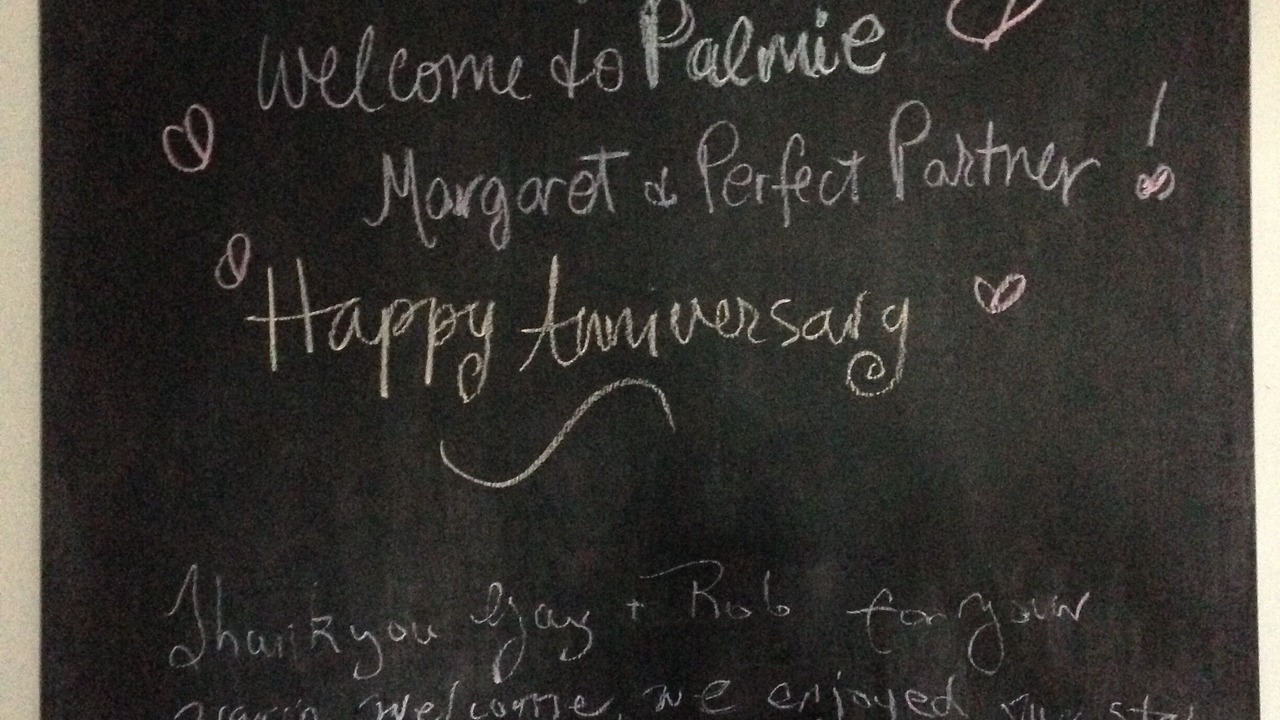 Welcome to Palmie
Margaret & Perfect Partner !
Happy Anniversary
Thankyou Gay + Rob for your
warm welcome, we enjoyed our stay